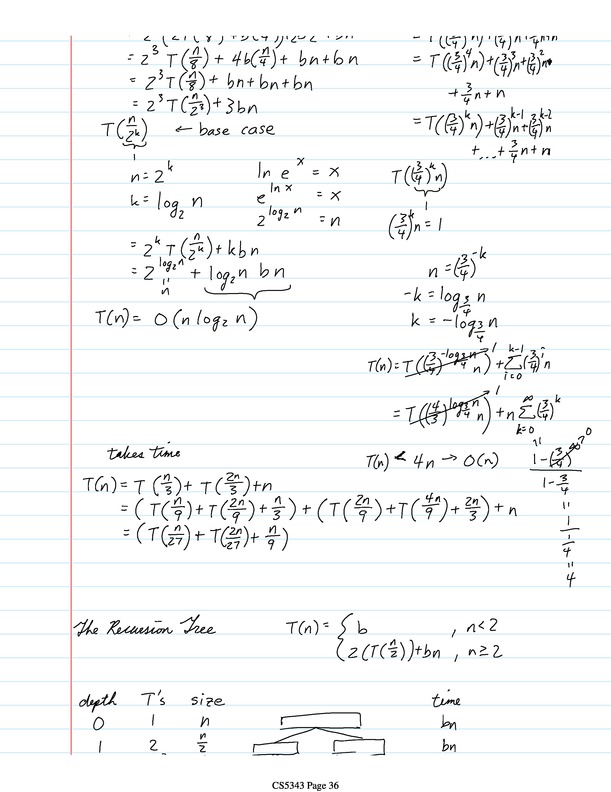 = 2³ T(n/8) + 4b(n/4) + bn + bn
= 2³ T(n/8) + bn + bn + bn
= 2³ T(n/2³) + 3bn
T(n/2^k) ← base case
1
n = 2^k
k = log₂ n
ln e^x = x
e^(ln x) = x
2^(log₂ n) = n
= 2^k T(n/2^k) + kbn
= 2^(log₂ n) + log₂ n bn
"
n
T(n) = O(n log₂ n)
= T((3/4)⁴ n) + (3/4)³ n + (3/4)² n
+ 3/4 n + n
= T((3/4)^k n) + (3/4)^(k-1) n + (3/4)^(k-2) n
+ ... + 3/4 n + n
T((3/4)^k n)
1
(3/4)^k n = 1
n = (3/4)^-k
-k = log_(3/4) n
k = -log_(3/4) n
T(n) = T((3/4)^(-log_(3/4) n) n) 1 + Σ_(i=0)^(k-1) (3/4)^i n
= T((4/3)^(log_(3/4) n) n) 1 + n Σ_(k=0)^∞ (3/4)^k
T(n) < 4n → O(n)
"
1 - (3/4)^∞ → 0
1 - 3/4
"
1
1/4
"
4
takes time
T(n) = T(n/3) + T(2n/3) + n
= (T(n/9) + T(2n/9) + n/3) + (T(2n/9) + T(4n/9) + 2n/3) + n
= (T(n/27) + T(2n/27) + n/9)
The Recursion Tree
T(n) = { b , n < 2
2(T(n/2)) + bn , n ≥ 2
depth T's size time
0 1 n bn
1 2 n/2 bn
CS5343 Page 36